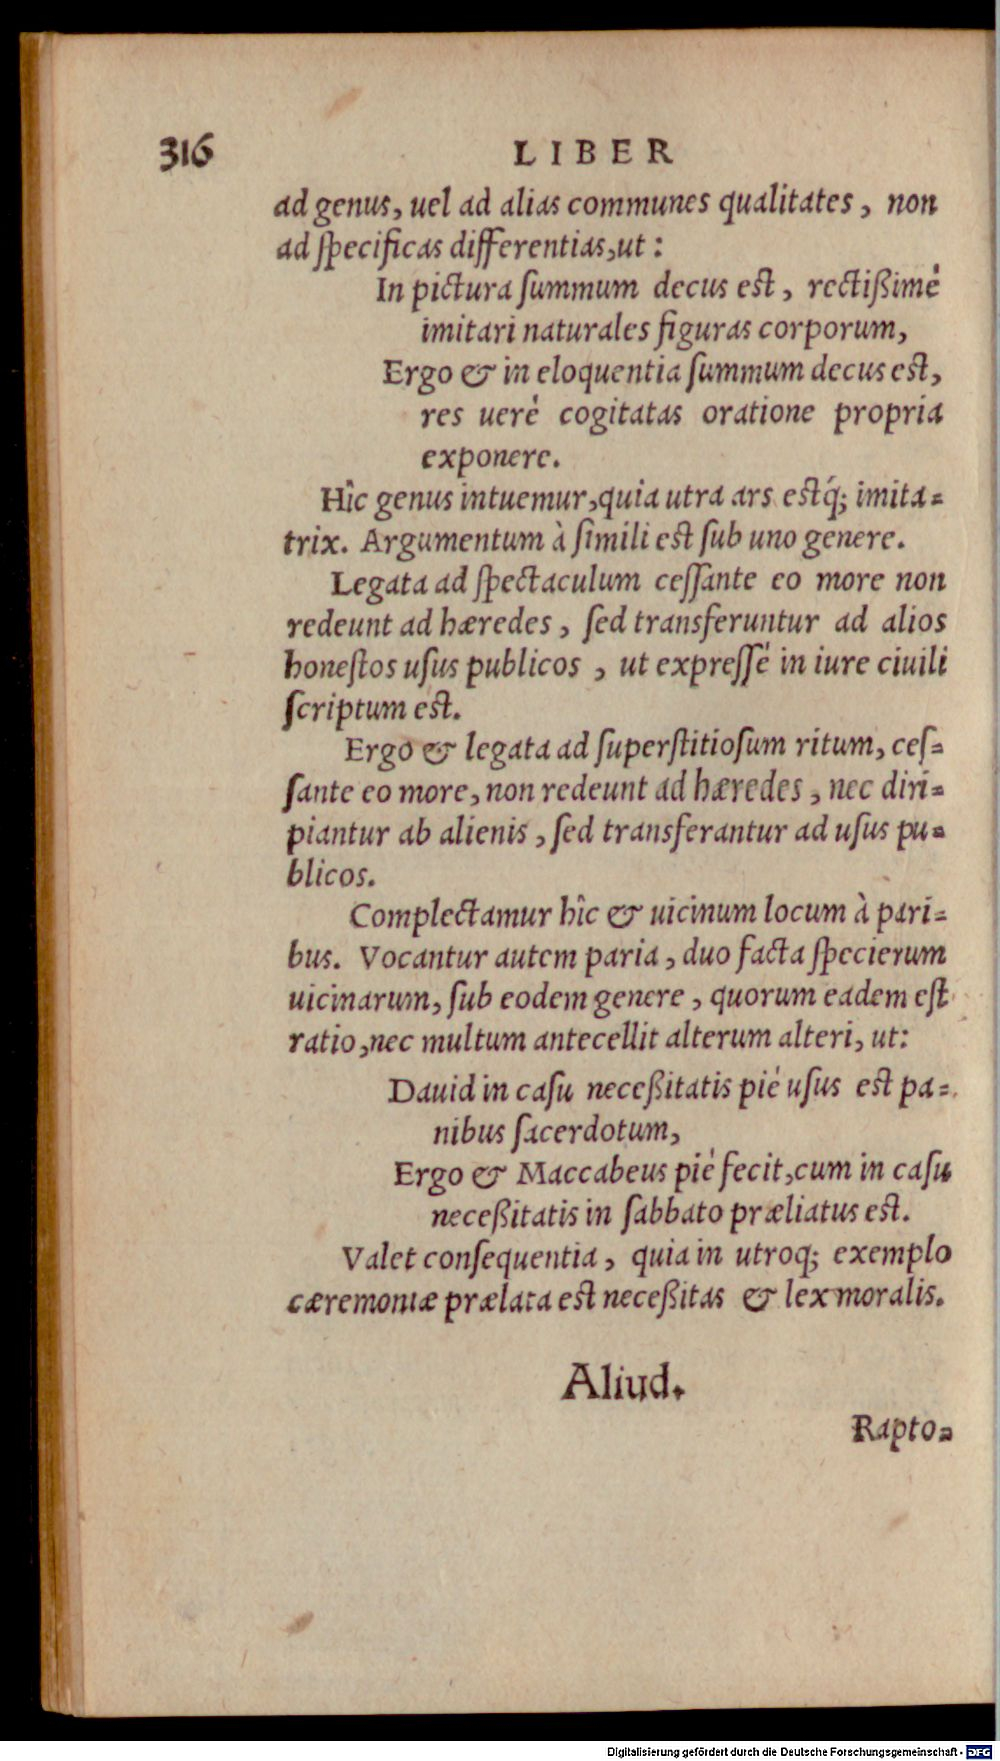 316 LIBER
ad genus, uel ad alias communes qualitates, non
ad ſpecificas differentias, ut:
In pictura ſummum decus est, rectißimè
imitari naturales figuras corporum,
Ergo & in eloquentia ſummum decus est,
res uerè cogitatas oratione propria
exponere.
Hîc genus intuemur, quia utra ars estq́; imita-
trix. Argumentum à ſimili est ſub uno genere.
Legata ad ſpectaculum ceſſante eo more non
redeunt ad hæredes, ſed transferuntur ad alios
honeſtos uſus publicos, ut expreſſè in iure ciuili
ſcriptum est.
Ergo & legata ad ſuperſtitioſum ritum, ceſ-
ſante eo more, non redeunt ad hæredes, nec diri-
piantur ab alienis, ſed transferantur ad uſus pu-
blicos.
Complectamur hîc & uicinum locum à pari-
bus. Vocantur autem paria, duo facta ſpecierum
uicinarum, ſub eodem genere, quorum eadem eſt
ratio, nec multum antecellit alterum alteri, ut:
Dauid in caſu neceßitatis piè uſus est pa-
nibus ſacerdotum,
Ergo & Maccabeus piè fecit, cum in caſu
neceßitatis in ſabbato præliatus est.
Valet conſequentia, quia in utroq; exemplo
cæremoniæ prælata est neceßitas & lex moralis.
Aliud.
Rapto-
Digitalisierung gefördert durch die Deutsche Forschungsgemeinschaft - DFG